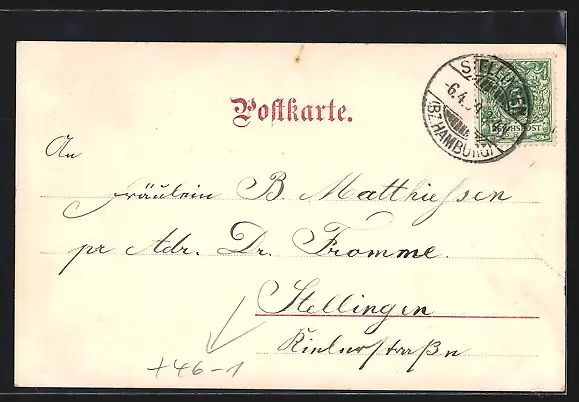 Postkarte.
STELLINGEN
-6.4.
(BZ. HAMBURG)
5
REICHSPOST
An
Fräulein B. Matthiessen
pr Adr. Dr. Fromme.
Stellingen
Kielerstraße
+46-1